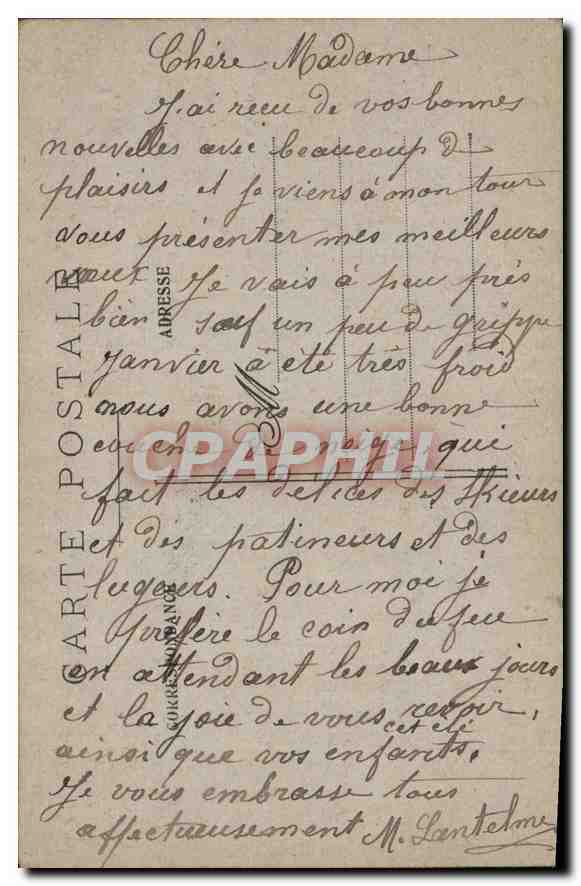 Chère Madame
J'ai recu de vos bonnes
nouvelles avec beaucoup d
plaisirs et je viens à mon tour
vous présenter mes meilleurs
vœux Je vais à peu près
bien sauf un peu de grippe
Janvier à été très froid
nous avons une bonne
couche de neige qui
fait les délices des skieurs
et des patineurs et des
lugeurs. Pour moi je
préfère le coin du feu
en attendant les beaux jours
et la joie de vous revoir,
cet été
ainsi que vos enfants.
Je vous embrasse tous
affectueusement M. Lantelme
CARTE POSTALE
ADRESSE
M
CORRESPONDANCE
CPAPHIL